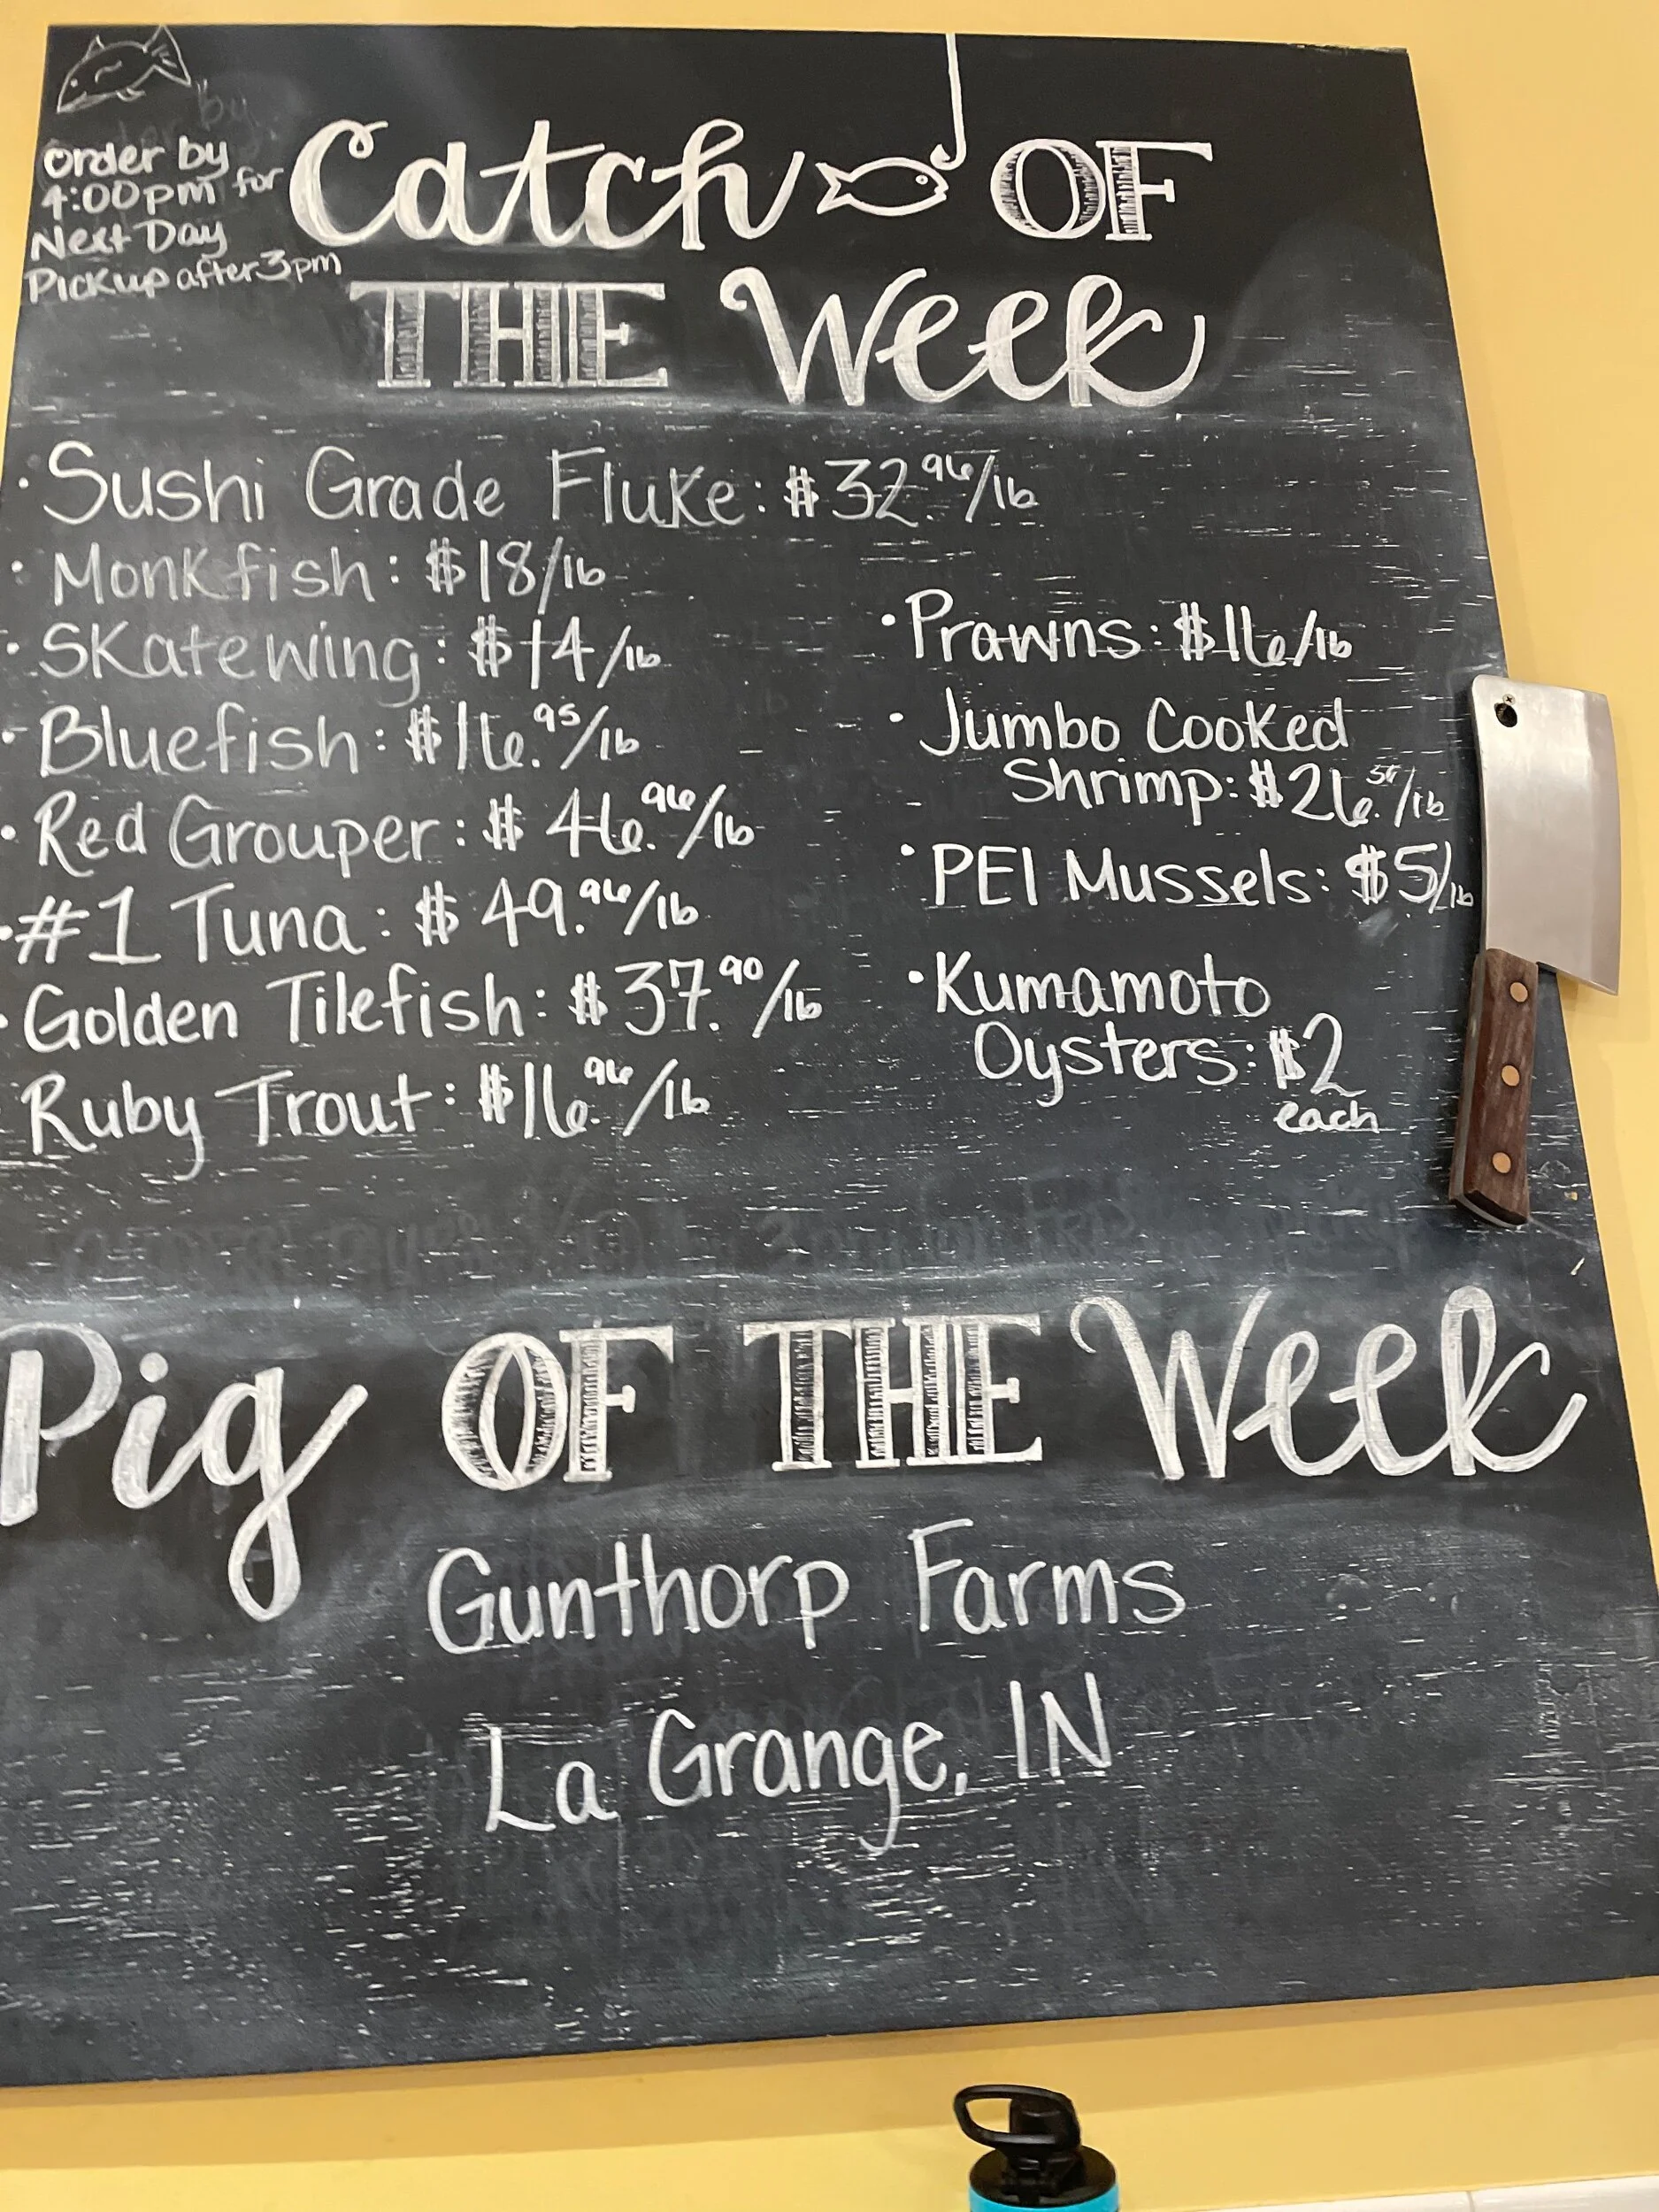 Order by
4:00pm for
Next Day
Pickup after 3pm
Catch OF
THE Week
• Sushi Grade Fluke: $32.96/lb
• Monkfish: $18/lb
• Skatewing: $14/lb
• Bluefish: $16.95/lb
• Red Grouper: $46.96/lb
• #1 Tuna: $49.96/lb
• Golden Tilefish: $37.90/lb
Ruby Trout: $16.96/lb
• Prawns: $16/lb
• Jumbo Cooked
Shrimp: $26./lb
• PEI Mussels: $5/lb
• Kumamoto
Oysters: $2
each
Pig OF THE Week
Gunthorp Farms
La Grange, IN